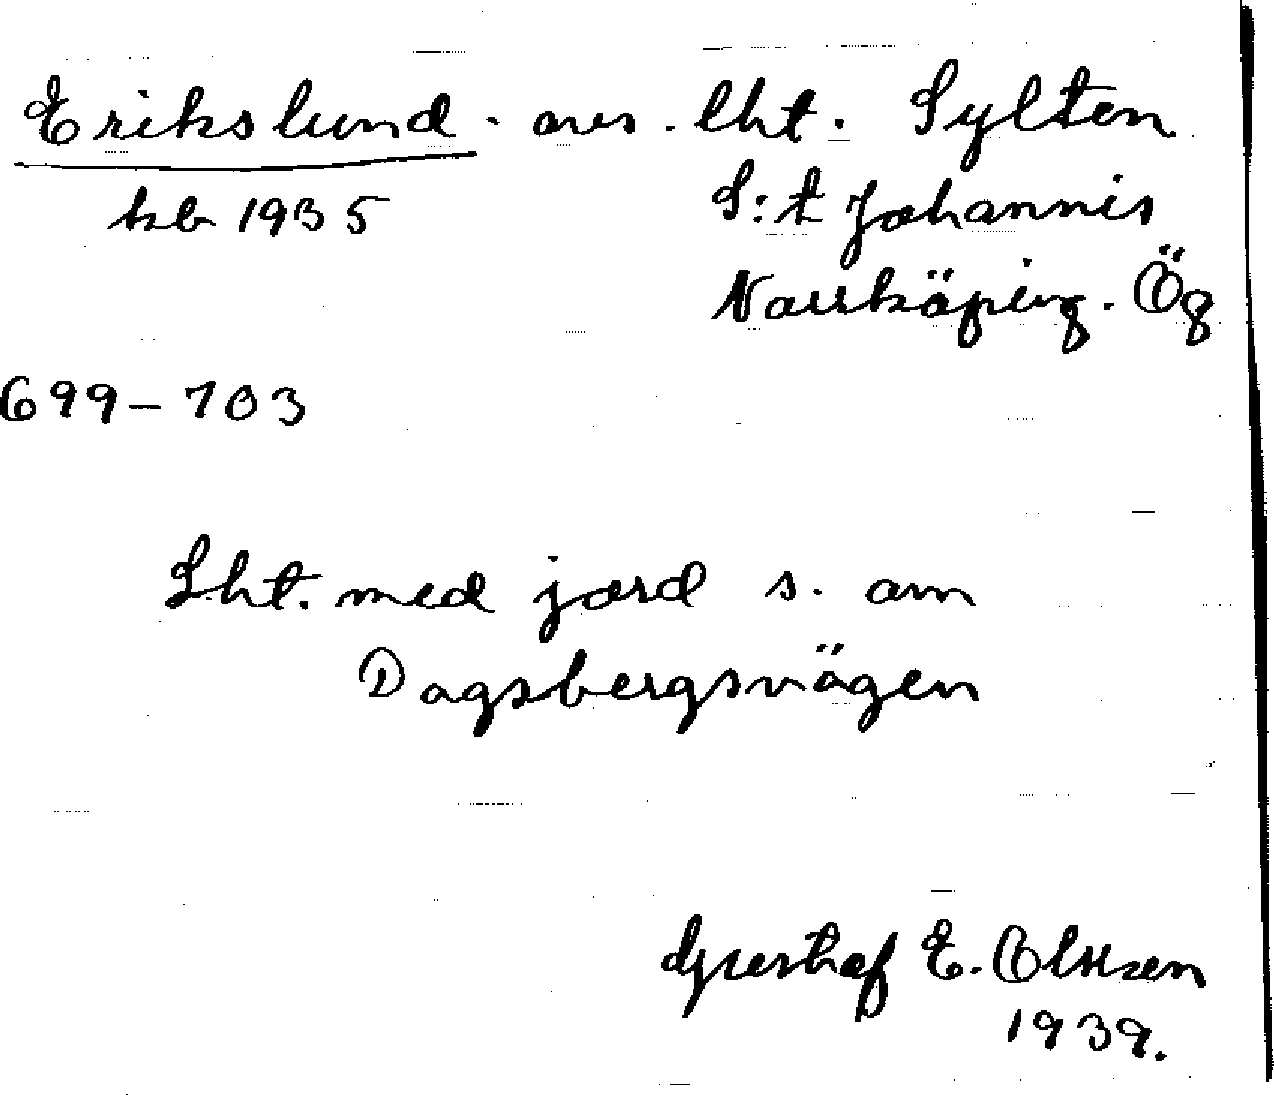 Erikslund. avs. lht. Sylten
kb 1935
S:t Johannis
Norrköping. Ög
699–703
Lht. med jord s. om
Dagsbergsvägen
Gusthaf E. Olsson
1939.